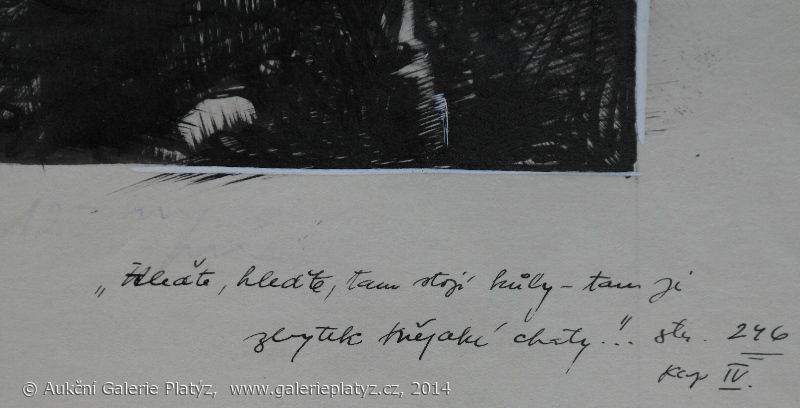 „Hleďte, hleďte, tam stojí kůly – tam je
zbytek nějaké chaty!" str. 246
kap IV.
© Aukční Galerie Platýz, www.galerieplatyz.cz, 2014